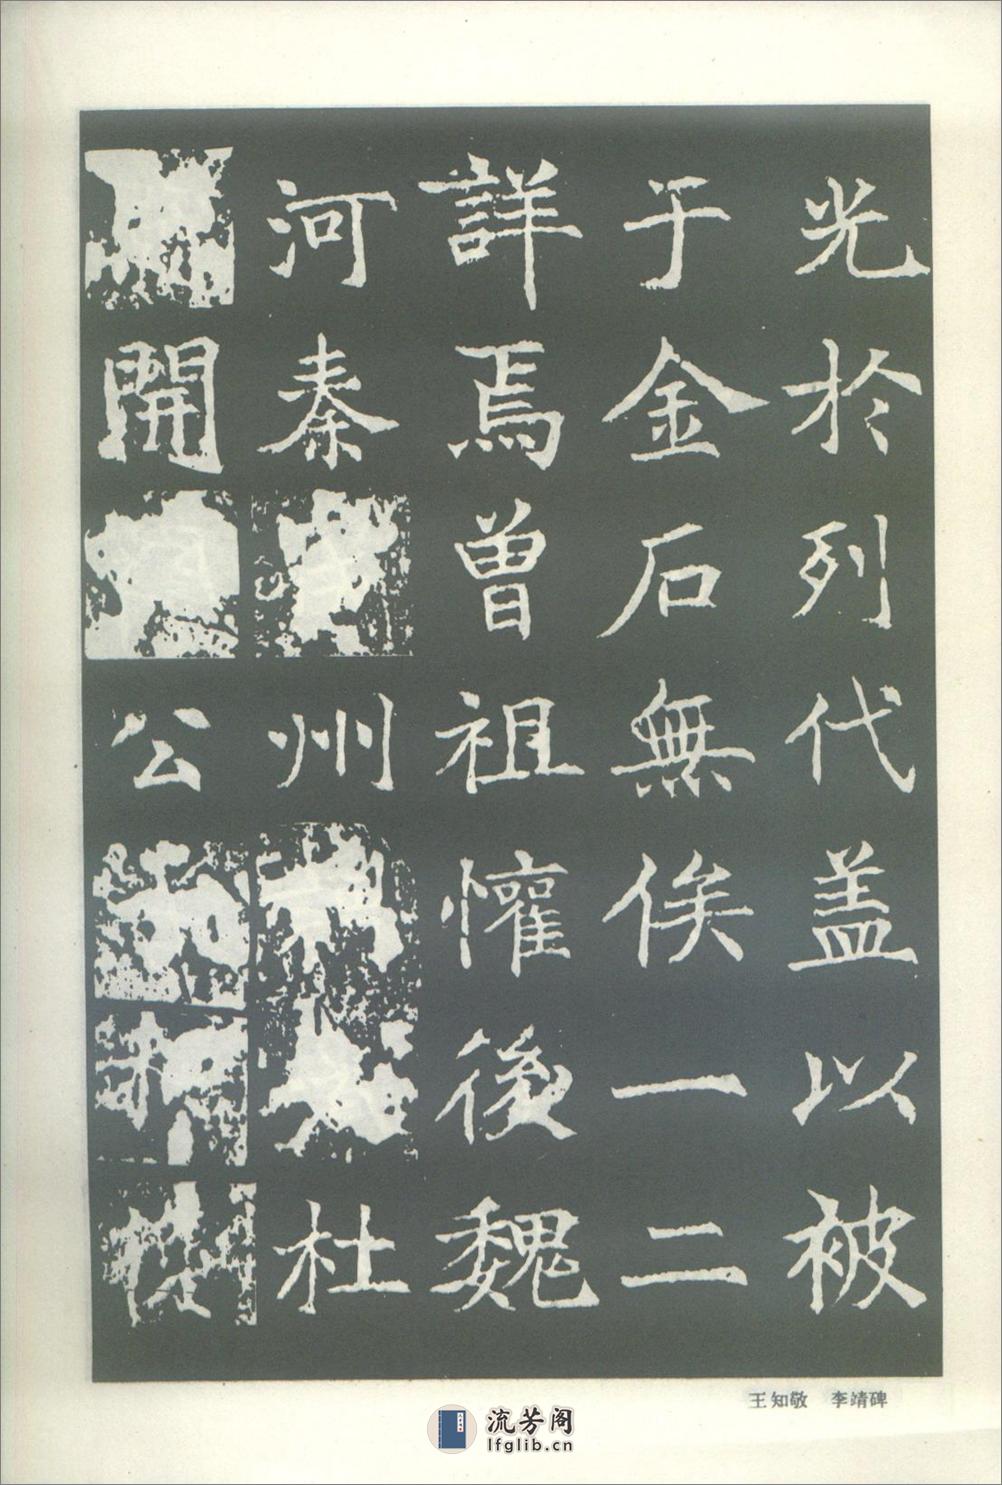 光於列代盖以被
于金石無俟一二
詳焉曾祖懽後魏
河秦州杜
開公
王知敬 李靖碑
流芳阁
lfglib.cn